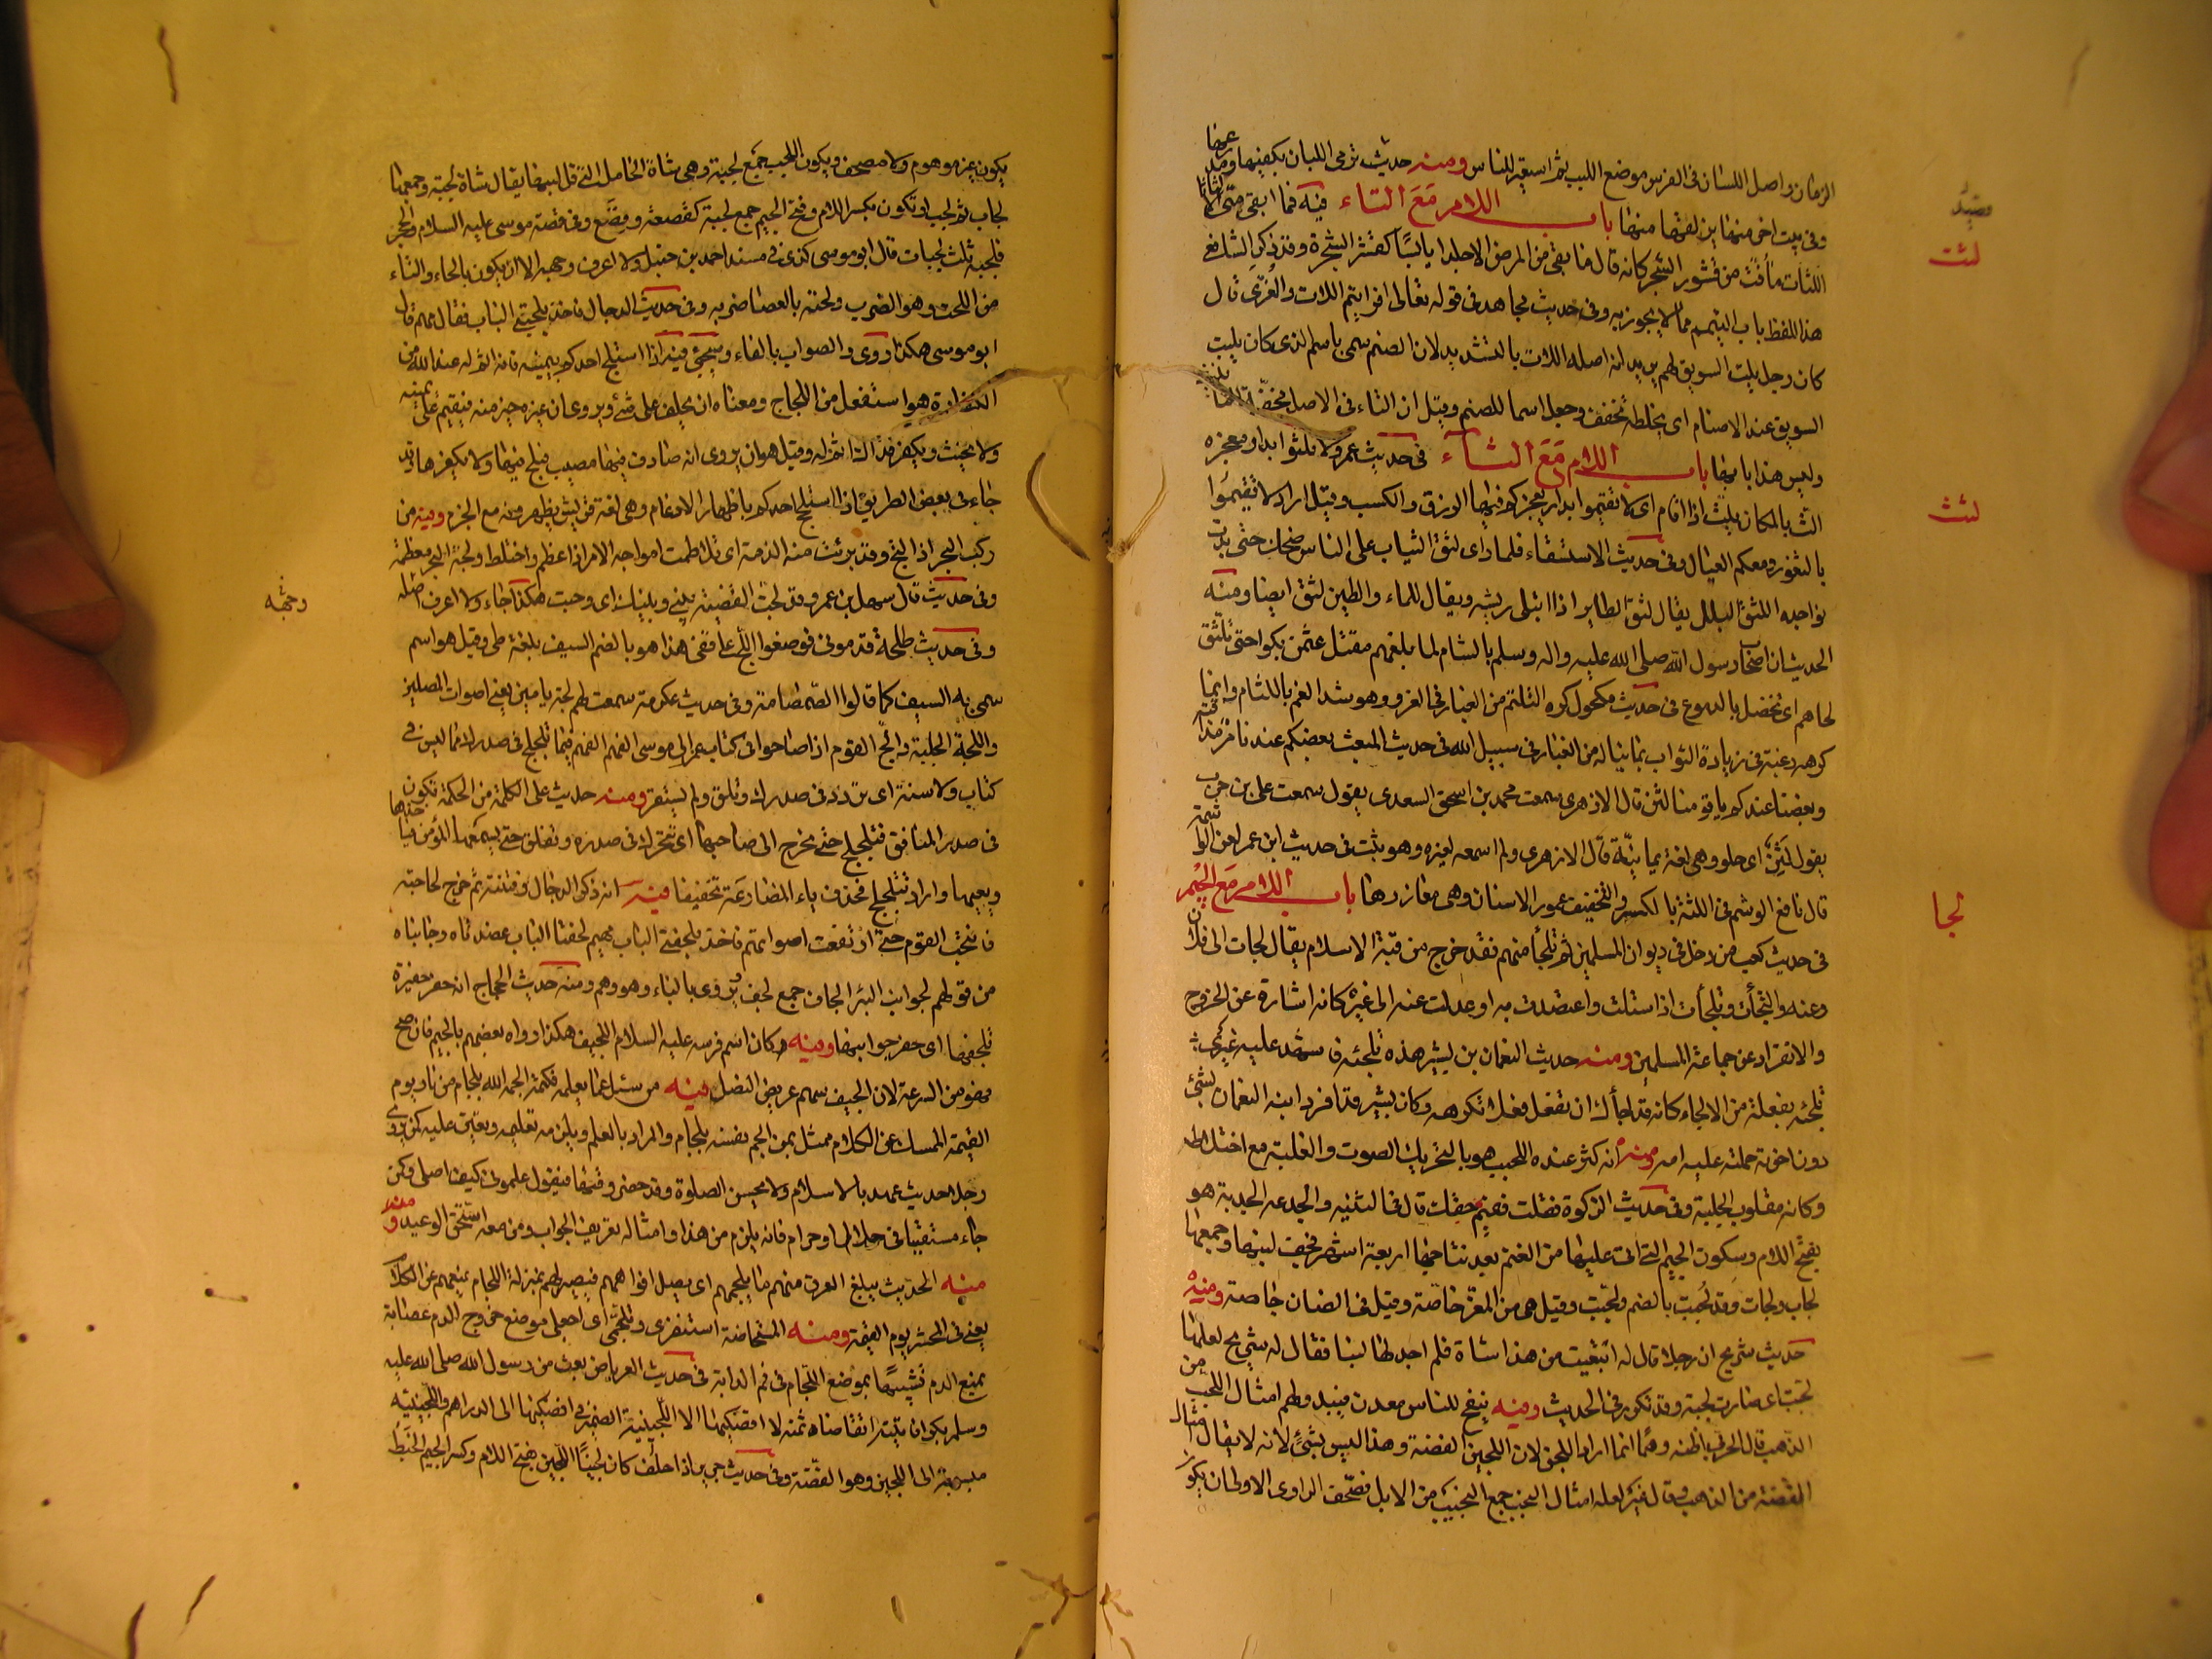 الزمان واصل اللسان فى الفرس موضع اللبب ثم استعير للناس ومنه حديث ترمى اللبان بكفيها ومدرعها
وفى بيت اخر منها ين لقها منها باب اللام مع التاء فيه فما ابقى منى الا لتاتا
اللتات ما فت من قشور الشجر كانه قال ما بقى من المرض الا جلدا يابسا كقشر الشجرة وقد ذكر الشافعى
هذا اللفظ باب التيمم مما لا يجوز به وفى حديث مجاهد فى قوله تعالى افرايتم اللات والعزى قال
كان رجل يلت السويق لهم يريد ان اصله اللات بالتشديد لان الصنم سمى باسم الذى كان يلت
السويق عند الاصنام اى يخلطه فخفف وجعل اسما للصنم وقيل ان التاء فى الاصل مخففة للتانيث
وليس هذا بابها باب اللام مع الثاء فى حديث عمر ولا تلثوا بدار معجزه
الث بالمكان يلث اذا اقام اى لا تقيموا بدار يعجزكم فيها الرزق والكسب وقيل اراد لا تقيموا
بالثغور ومعكم العيال وفى حديث الاستسقاء فلما راى لثق الثياب على الناس ضحك حتى بدت
نواجذه اللثق البلل يقال لثق الطاير اذا ابتل ريشه ويقال للماء والطين لثق ايضا ومنه
الحديث ان اصحاب رسول الله صلى الله عليه واله وسلم بالشام لما بلغهم مقتل عثمن بكوا حتى تلثق
لحاهم اى تخضل بالدموع فى حديث مكحول كره التلثم من الغبار فى الغزو وهو شد الفم باللثام وانما
كرهه رغبة فى زيادة الثواب بما يناله من الغبار فى سبيل الله فى حديث المبعث بغضكم عندنا مر مذاقته
وبغضنا عندكم يا قومنا لثن قال الازهرى سمعت محمد بن اسحق السعدى يقول سمعت على بن حرب
يقول لثن اى حلو وهى لغة يمانية قال الازهرى ولم اسمعه لغيره وهو ثبت فى حديث ابن عمر لعن الواشمة
قال نافع الوشم فى اللثة بالكسر والتخفيف عمور الاسنان وهى مغارزها باب اللام مع الجيم
فى حديث كعب من دخل فى ديوان المسلمين ثم تلجأ منهم فقد خرج من قبة الاسلام يقال لجات الى فلان
وعنه والتجأت وتلجأت اذا استندت واعتضدت به او عدلت عنه الى غيره كانه اشارة عن الخروج
والانفراد عن جماعة المسلمين ومنه حديث النعمان بن بشير هذه تلجئه فاشهد عليه غيرى
تلجئه تفعلة من الالجاء كانه قد الجأك ان تفعل فعلا تكرهه وكان بشير قد افرد ابنه النعمان بشئ
دون اخوته حملته عليه امه ومنه انه كثر عنده اللجب هو بالتحريك الصوت والغلبة مع اختلاط
وكانه مقلوب الجلبة وفى حديث الزكوة فقلت ففيم حقك قال فى الثنيه والجذعه اللجبة هو
بفتح اللام وسكون الجيم التى اتى عليها من الغنم بعد نتاجها اربعة اشهر فخف لبنها وجمعها
لجاب ولجبات وقد لجبت بالضم ولجبت وقيل هى من المعز خاصة وقيل فى الضان خاصة ومنه
حديث شريح ان رجلا قال له ابتعت من هذا شاة فلم اجد لها لبنا فقال له شريح لعلها
لجبت اى صارت لجبة وقد تكرر فى الحديث ومنه ينفتح للناس معدن فيبدو لهم امثال اللجب من
الذهب قال الحربى اظنه وهما انما اراد اللجن لان اللجين الفضة وهذا ليس بشئ لانه لا يقال امثال
الفضة من الذهب وقال غيره لعله امثال النجب جمع النجيب من الابل فصحف الراوى الاولى ان يكون
وصيد
لتت
لثث
لجا
يكون غير موهوم ولا مصحف ويكون اللجب جمع لجبة وهى شاة الحامل التى قل لبنها يقال شاة لجبة وجمعها
لجاب ثم لجب او تكون بكسر اللام وفتح الجيم جمع لجبة كقصعة وقصع وفى قصة موسى عليه السلام والحجر
فلجبه ثلث لجبات قال ابو موسى كذى فى مسند احمد بن حنبل ولا اعرف وجهه الا ان يكون بالحاء والتاء
من اللحت وهو الضرب ولحته بالعصا ضربه وفى حديث الدجال فاخذ بلجبتى الباب فقال مهيم قال
ابو موسى هكذا روى والصواب بالفاء وسيجئ فيه اذا استلج احدكم بيمينه فانه اثم له عند الله من
الكفارة هو استفعل من اللجاج ومعناه ان يحلف على شئ ويرى ان غيره خير منه فيقيم على يمينه
ولا يحنث ويكفر فذاك اثم له وقيل هو ان يرى انه صادق فيها مصيب فيلج فيها ولا يكفرها وقد
جاء فى بعض الطريق اذا استلجج احدكم باظهار الادغام وهى لغة قريش يظهرونه مع الجزم وفيه من
ركب البحر اذا التج وقد برئت منه الذمة اى تلاطمت امواجه الامر اذا عظم واختلط ولجة البحر معظمه
وفى حديث قال سهل بن عمرو قد لجت القضية بينى وبينك اى وجبت هكذا جاء ولا اعرف اصله
وفى حديث طلحة قدمونى فوضعوا اللج على قفى هذا هو بالضم السيف بلغة طى وقيل هو اسم
سمى به السيف كما قالوا الصمصامة وفى حديث عكرمة سمعت لهم لجة بامين يعنى اصوات المصلين
واللجة الجلبة والج القوم اذا صاحوا فى كتاب عمر الى موسى الفهم الفهم فيما تلجلج فى صدرك مما ليس فى
كتاب ولا سنة اى تردد فى صدرك وقلق ولم يستقر ومنه حديث على الكلمة من الحكمة تكون
فى صدر المنافق فتلجلج حتى تخرج الى صاحبها اى تتحرك فى صدره وتقلق حتى يسمعها المؤمن فياخذها
ويعيها واراد تتلجلج فحذف ياء المضارعة تخفيفا فيه انه ذكر الدجال وفتنته ثم خرج لحاجته
فانتحب القوم حتى ارتفعت اصواتهم فاخذ بلجفتى الباب مهيم لجفتا الباب عضدتاه وجانباه
من قولهم لجوانب البئر الجاف جمع لجف ويروى بالباء وهو وهم ومنه حديث الحجاج انه حفر حفيرة
فلجفها اى حفر جوانبها ومنه وكان اسم فرسه عليه السلام اللجيف هكذا رواه بعضهم بالجيم فان صح
فهو من السرعة لان الجيف سهم عريض النصل فيه من سئل عما يعلمه فكتمه الجمه الله بلجام من نار يوم
القيمة الممسك عن الكلام ممثل بمن الجم نفسه بلجام والمراد بالعلم ويلزمه تعليمه ويتعين عليه كمن يرى
رجلا حديث عهد بالاسلام ولا يحسن الصلوة وقد حضر وقتها فيقول علمونى كيف اصلى وكمن
جاء مستفتيا فى حلال او حرام فانه يلزم من هذا وامثاله تعريف الجواب ومن منعه استحق الوعيد و
منه الحديث يبلغ العرق منهم ما يلجمهم اى يصل افواههم فيصير لهم بمنزلة اللجام يمنعهم عن الكلام
يعنى فى المحشر يوم القيمة ومنه المستحاضة استثفرى وتلجمى اى اجعلى موضع خروج الدم عصابة
تمنع الدم تشبيها بموضع اللجام فى فم الدابة فى حديث العرباض بعت من رسول الله صلى الله عليه
وسلم بكرا فاتيته اتقاضاه ثمنه لا اقضيكها الا اللجينية الضمير فى اقضيكها الى الدراهم واللجينيه
منسوبة الى اللجين وهو الفضة وفى حديث جرير اذا اخلف كان لجينا اللجين بفتح اللام وكسر الجيم الخبط
وجهه